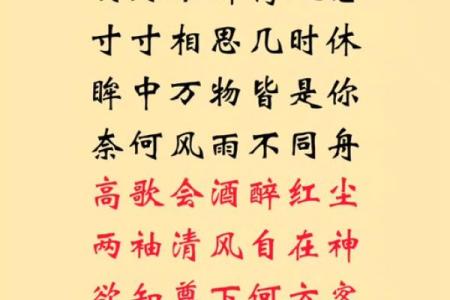 寸寸相思几时休
眸中万物皆是你
奈何风雨不同舟
高歌会酒醉红尘
两袖清风自在神
欲知尊下何方客